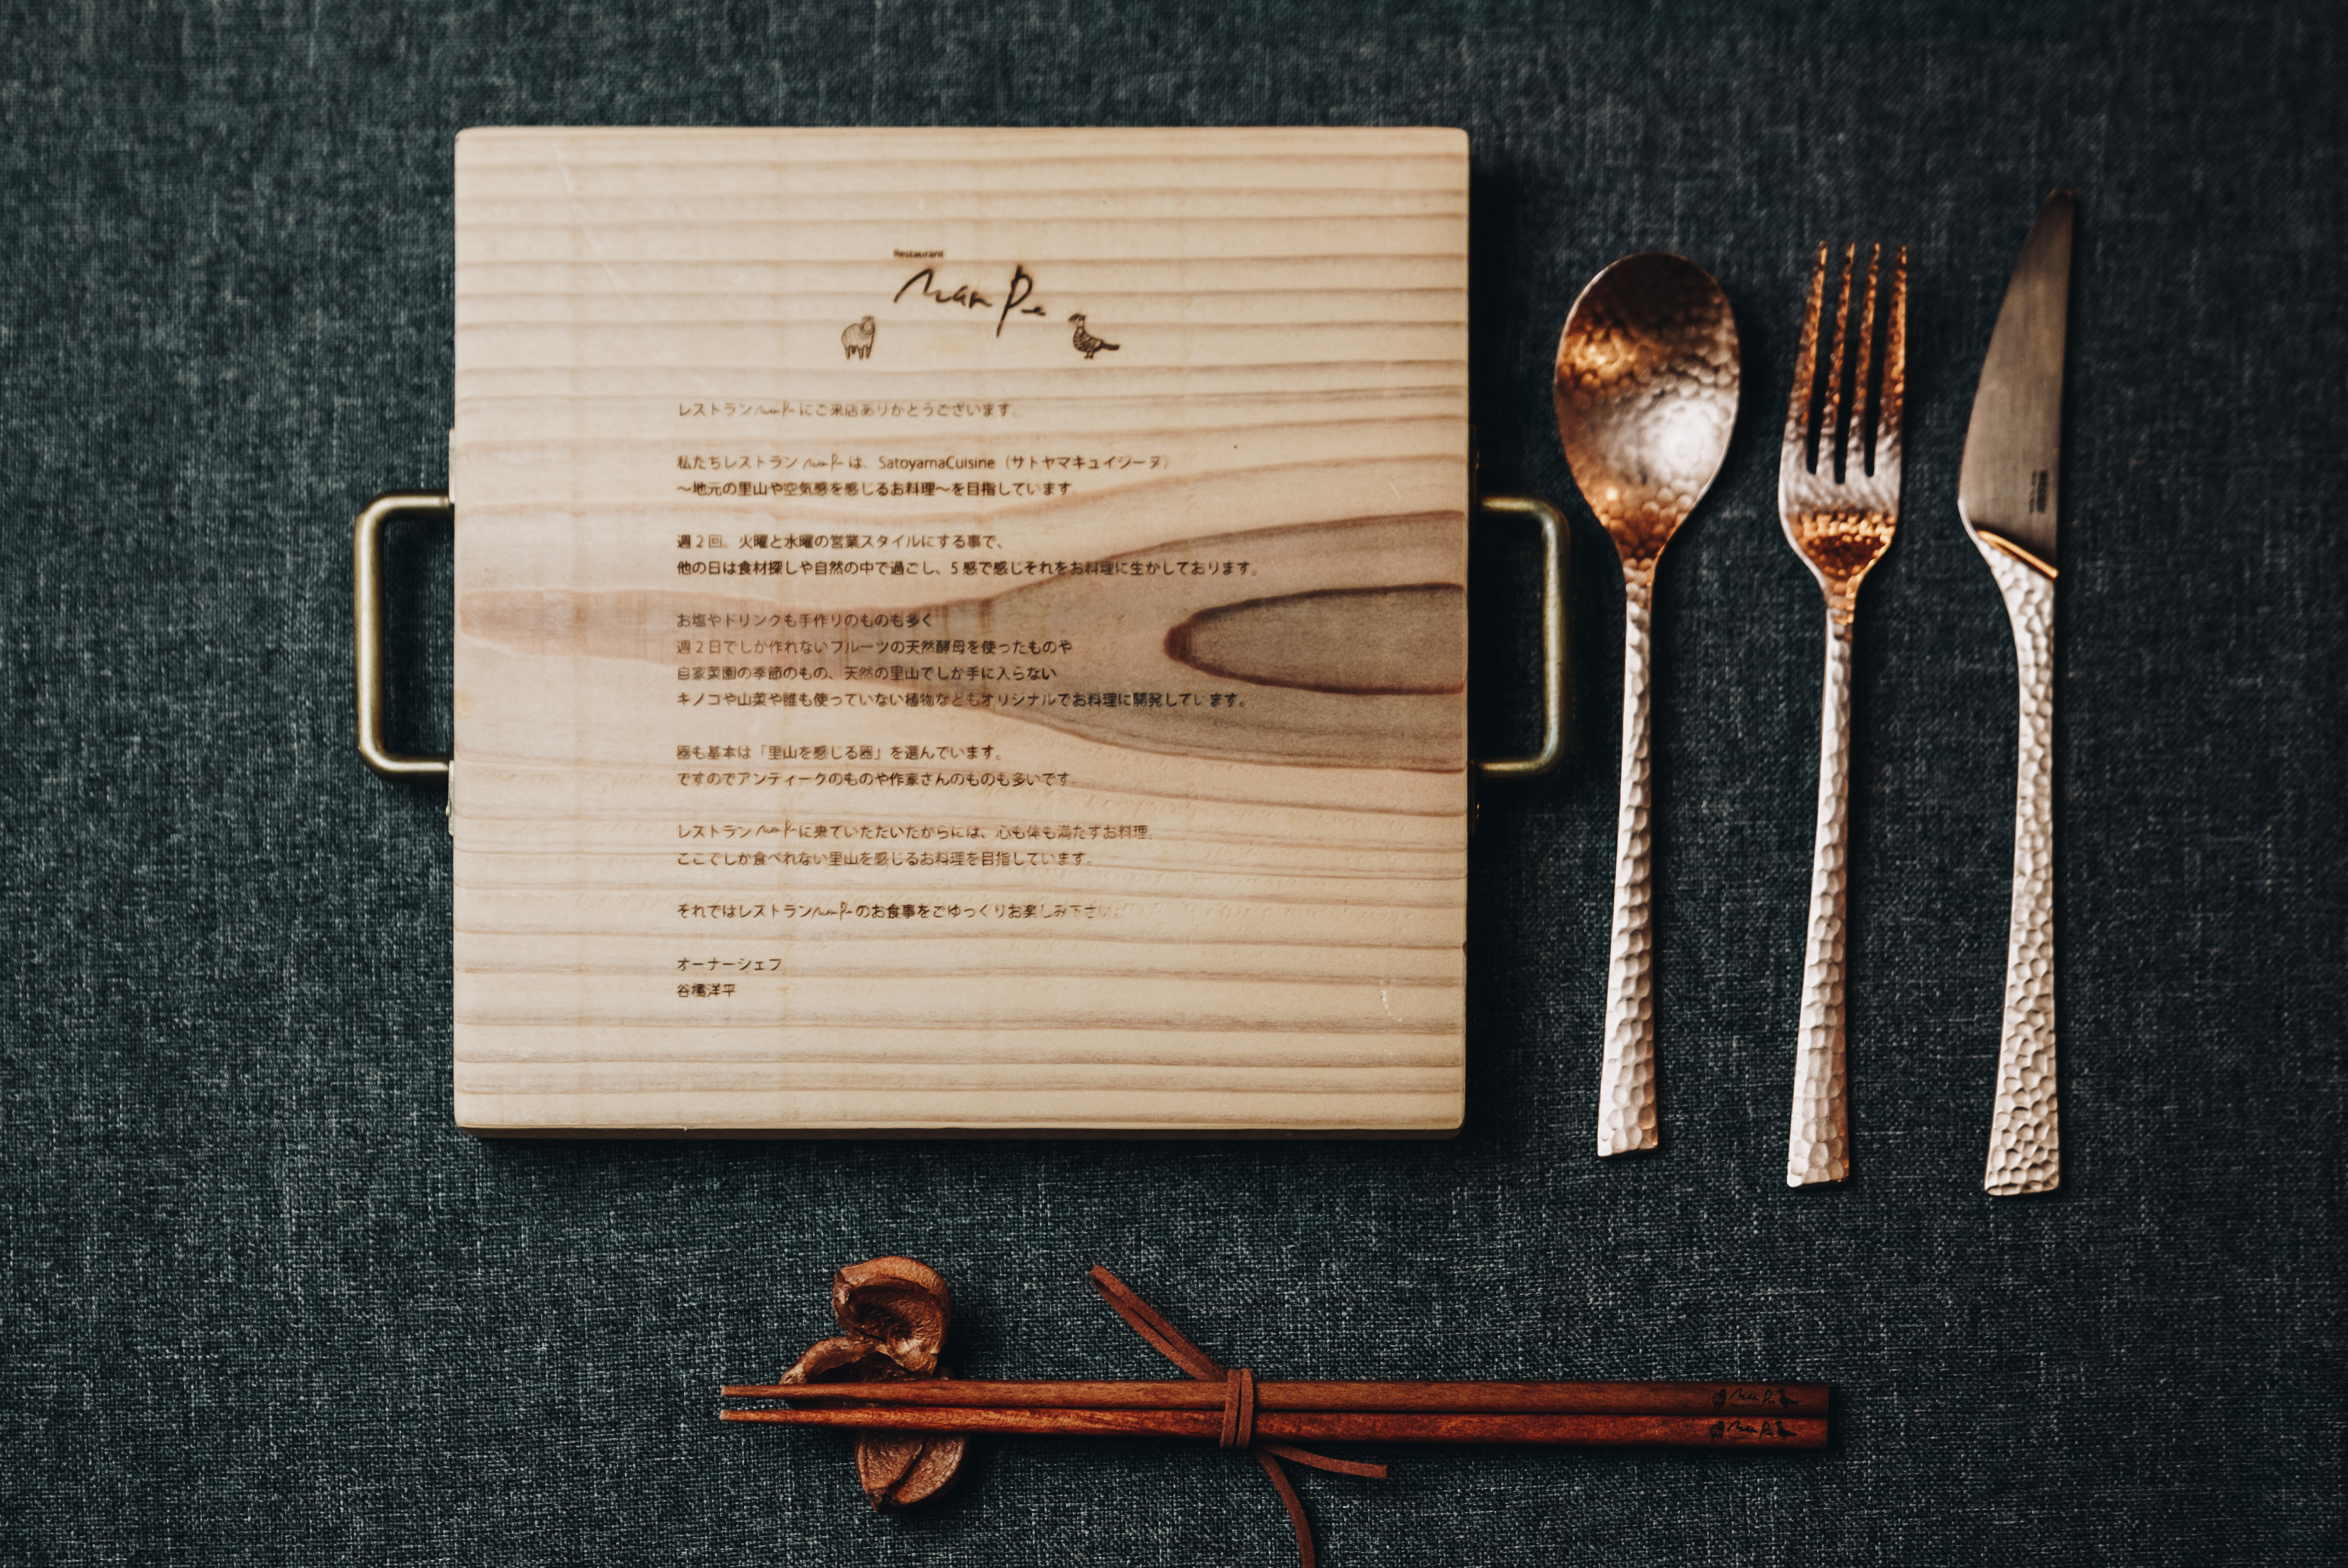 Restaurant
Nan Pe
レストランNan Peにご来店ありがとうございます。
私たちレストランNan Peは、SatoyamaCuisine（サトヤマキュイジーヌ）
～地元の里山や空気感を感じるお料理～を目指しています
週2回。火曜と水曜の営業スタイルにする事で、
他の日は食材探しや自然の中で過ごし、5感で感じそれをお料理に生かしております。
お塩やドリンクも手作りのものも多く
週2日でしか作れないフルーツの天然酵母を使ったものや
自家菜園の季節のもの、天然の里山でしか手に入らない
キノコや山菜や誰も使っていない植物などもオリジナルでお料理に開発しています。
器も基本は「里山を感じる器」を選んでいます。
ですのでアンティークのものや作家さんのものも多いです。
レストランNan Peに来ていただいたからには、心も体も満たすお料理。
ここでしか食べれない里山を感じるお料理を目指しています。
それではレストランNan Peのお食事をごゆっくりお楽しみ下さい。
オーナーシェフ
谷橋洋平
Nan Pe
Nan Pe